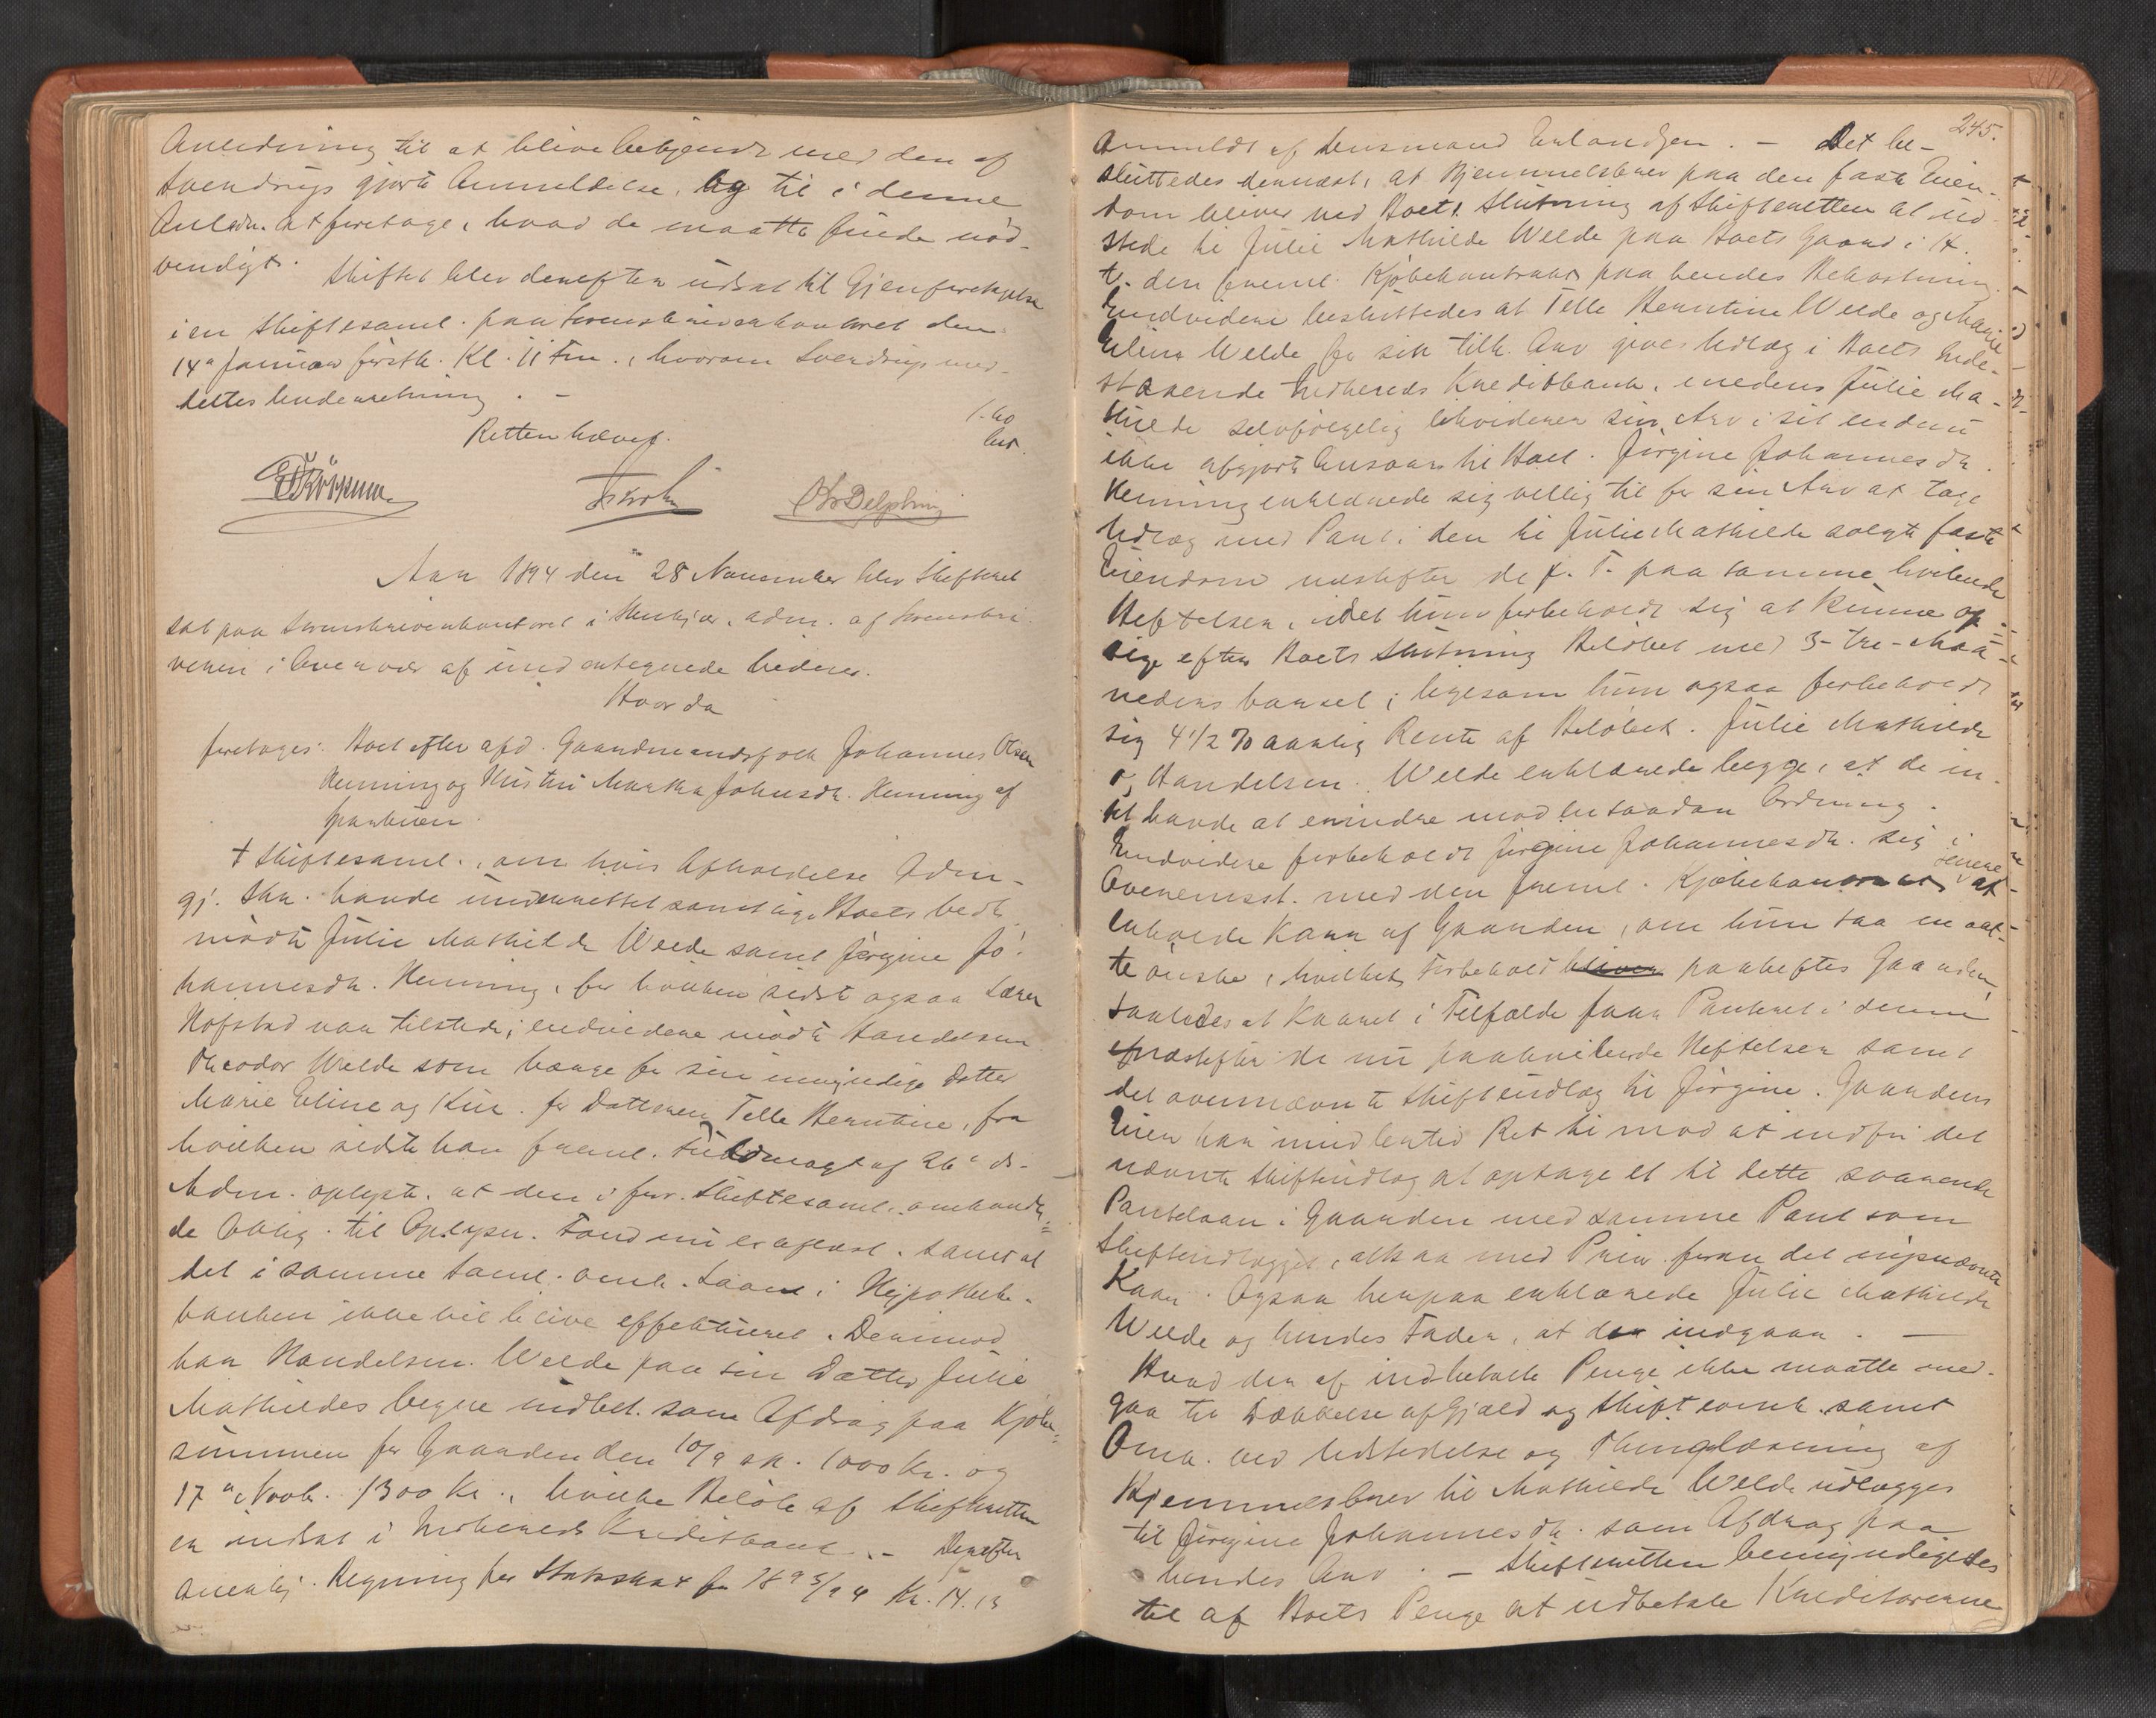 Anledning til at blive bekjendt med den af
Svendrup gjorte Anmeldelse, og til i denne
Anledn. at foretage, hvad de maatte finde nød-
vendigt.
Skiftet blev derefter udsat til Gjenforetagelse
i en Skiftesaml. paa Sorenskriverkontoret den
14de Januar førstk. Kl. 11 Fm., hvorom Svendrup med-
deltes Underretning. –
Retten hævet.
Aar 1894 den 28 November blev Skifteret
sat paa Sorenskriverkontoret i Stenkjær, adm. af Sorenskri-
veren i Overvær af undertegnede Vidner.
Hvorda
foretoges: Boet efter afd. Gaardmandsfolk Johannes Olsen
Henning og Hustru Martha Johnsdr. Henning af
Sparbuen.
I Skiftesaml., om hvis Afholdelse Adm.
gj. Skr. havde underrettet samtlige Boets Vedk.
mødte Julie Mathilde Welde samt Jørgine Jo-
hannesdr. Henning, for hvilken sidste ogsaa Lærer
Hofstad var tilstede; endvidere mødte Handelsm.
Theodor Welde som Værge for sin umyndige Datter
Marie Eline og Kur. for Datteren Telle Berntine, fra
hvilken sidste han freml. Fuldmagt af 26de ds. –
Adm. oplyste, at den i forr. Skiftesaml. omhandle-
de Oblig. til Oplysn. Fond nu er aflæst, samt at
det i samme Saml. omh. Laan i Hypothek-
banken ikke vil blive effektueret. Derimod
har Handelsm. Welde paa sin Datter Julie
Mathildes Vegne indbet. som Afdrag paa Kjøbe-
summen for Gaarden den 10/9 sk. 1000 Kr. og
17de Novb. 1300 Kr., hvilke Beløb af Skifteretten
er indsat i Inderøens Kreditbank. – Derefter
Regning for Statsskat for 1893/94 Kr. 14.13
245.
anmeldt af Lensmand Erlandsen. – Det be-
sluttedes dernæst, at Hjemmelsbrev paa den faste Eien-
dom bliver ved Boets Slutning af Skifteretten at ud-
stede til Julie Mathilde Welde paa Boets Gaard i H.
t. den freml. Kjøbekontrakt paa hendes Bekostning.
Endvidere besluttedes at Telle Berntine Welde og Marie
Eline Welde for sin tilk. Arv gives Udlæg i Boets Inde-
staaende Inderøens Kreditbank, medens Julie Ma-
thilde selvfølgelig likviderer sin Arv i sit endnu
ikke afgjorte Ansvar til Boet. Jørgine Johannesdr.
Henning erklærede sig villig til for sin Arv at tage
Udlæg med Pant i den til Julie Mathilde solgte faste
Eiendom næstefter de f. T. paa samme hvilende
Heftelser, idet hun forbeholdt sig at kunne op-
sige efter Boets Slutning Beløbet med 3 – tre – Maa-
neders Varsel; ligesom hun ogsaa forbeholdt
sig 4 1/2 % aarlig Rente af Beløbet. Julie Mathilde
og Handelsm. Welde erklærede begge, at de in-
tet havde at erindre mod en saadan Ordning.
Endvidere forbeholdt Jørgine Johannesdr. sig i
Overensst. med den freml. Kjøbekontrakt senere at
erholde Kaar af Gaarden, om hun saa maat-
te ønske, hvilket Forbehold paaheftes Gaarden,
saaledes at Kaaret i Tilfælde faar Panteret i denne
næstefter de nu paahvilende Heftelser samt
det ovennævnte Skifteudlæg til Jørgine. Gaardens
Eier har imidlertid Ret til mod at indfri det
nævnte Skifteudlæg at optage et til dette svarende
Pantelaan i Gaarden med samme Pant som
Skifteudlægget, altsaa med Prior. foran det nysnævnte
Kaar. Ogsaa herpaa erklærede Julie Mathilde
Welde og hendes Fader, at de indgaar. –
Hvad der af indbetalte Penge ikke maatte med-
gaa til Dækkelse af Gjæld og Skifteomk. samt
Omk. ved Udstedelse og Thinglæsning af
Hjemmelsbrev til Mathilde Welde udlægges
til Jørgine Johannesdr. som Afdrag paa
hendes Arv. – Skifteretten bemyndigedes
til af Boets Penge at udbetale Kreditorerne